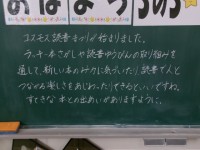 コスモス読書まつりが始まりました。
ラッキー本さがしや読書ゆうびんの取り組みを
通して、新しい本のみりょくに気づいたり、読書で人と
つながる楽しさをあじわったりできるといいですね。
すてきな本との出あいがありますように。